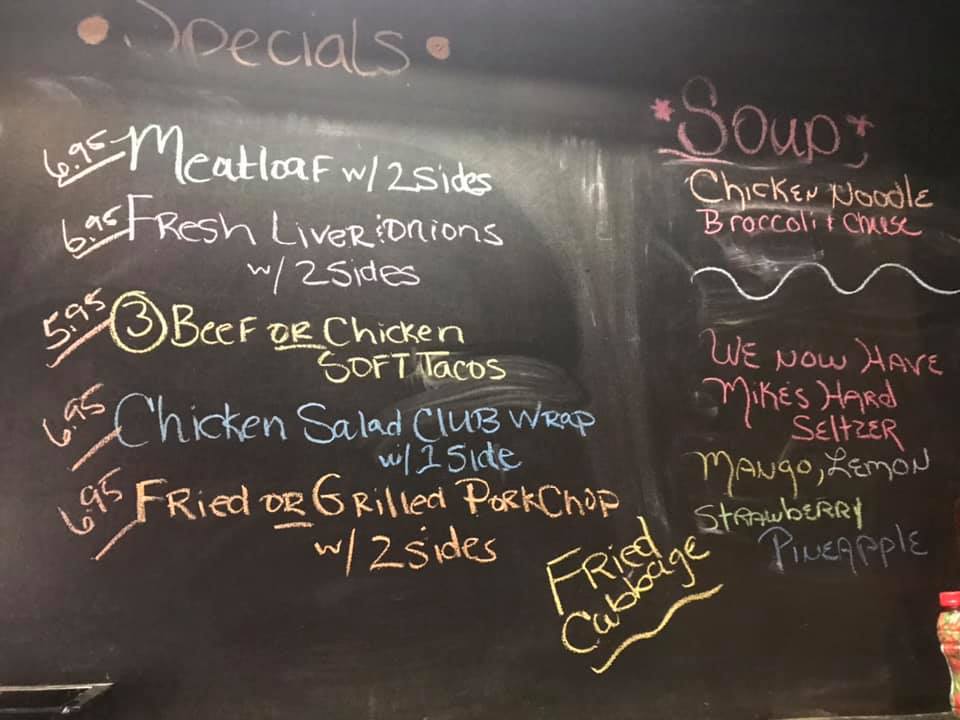 • Specials •
6.95 Meatloaf w/ 2 sides
6.95 Fresh Liver & Onions
w/ 2 Sides
5.95 3 Beef or Chicken
Soft Tacos
6.95 Chicken Salad Club Wrap
w/ 1 Side
6.95 Fried or Grilled PorkChop
w/ 2 sides
Fried
Cabbage
*Soup*
Chicken Noodle
Broccoli + Cheese
We now Have
Mike's Hard
Seltzer
Mango, Lemon
Strawberry
Pineapple